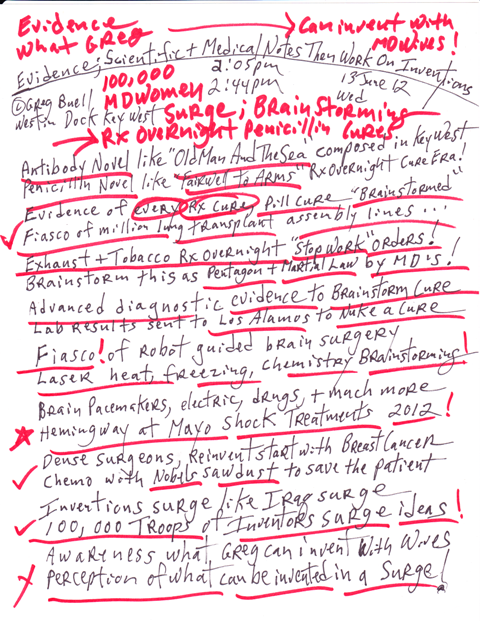 Evidence → Can invent with
What Greg MD Wives!
Evidence; Scientific + Medical Notes Then Work On Inventions
100,000 2:05pm 13 June 12
© Greg Buell MD Women 2:44pm Wed
Westin Dock Key West Surge; Brainstorming
→ Rx Overnight Penicillin Cures
Antibody Novel like "Old Man And The Sea" composed in Key West
Penicillin Novel like "Fairwell To Arms" Rx Overnight Cure Era!
Evidence of every Rx Cure, Pill Cure "Brainstormed"
Fiasco of million lung transplant assembly lines...
Exhaust + Tobacco Rx Overnight "Stop Work" Orders!
Brainstorm this as Pentagon + Martial Law by MD's!
Advanced diagnostic evidence to Brainstorm Cure
Lab Results sent to Los Alamos to Nuke a Cure
Fiasco! of Robot guided brain surgery
Laser heat, freezing, chemistry Brainstorming!
Brain Pacemakers, electric, drugs, + much more
Hemingway at Mayo Shock Treatments 2012!
Dense surgeons, Reinvent start with Breast Cancer
Chemo with Nobels sawdust to save the patient
Inventions surge like Iraq surge
100,000 Troops of Inventors surge ideas!
Awareness what Greg can invent with Wives
Perception of what can be invented in a Surge!